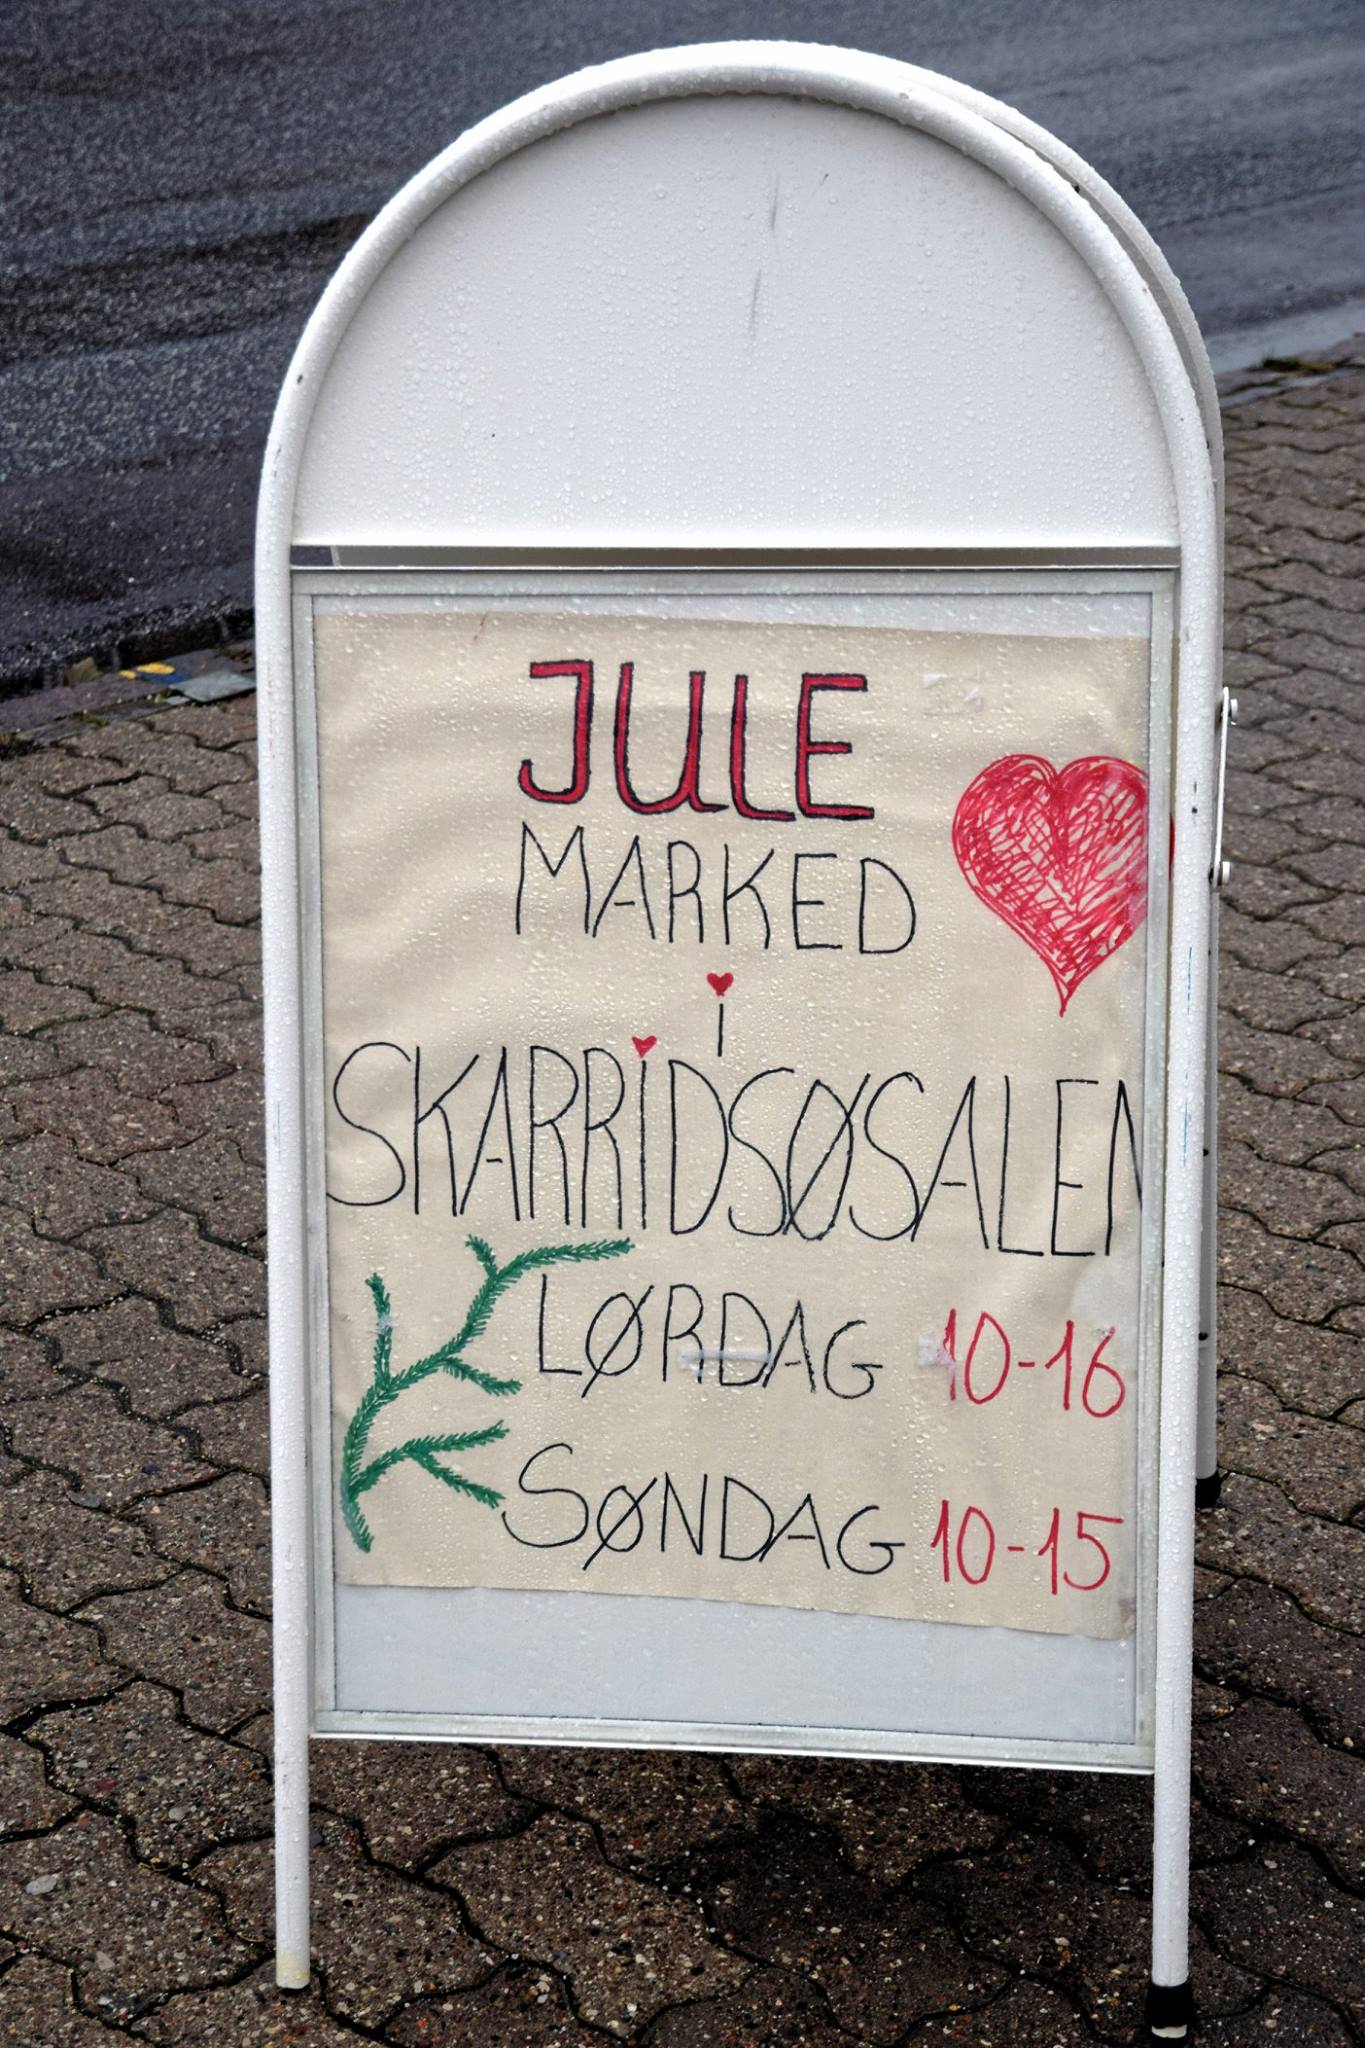 JULE
MARKED
i
SKARRiDSØSALEN
LØRDAG 10-16
SØNDAG 10-15